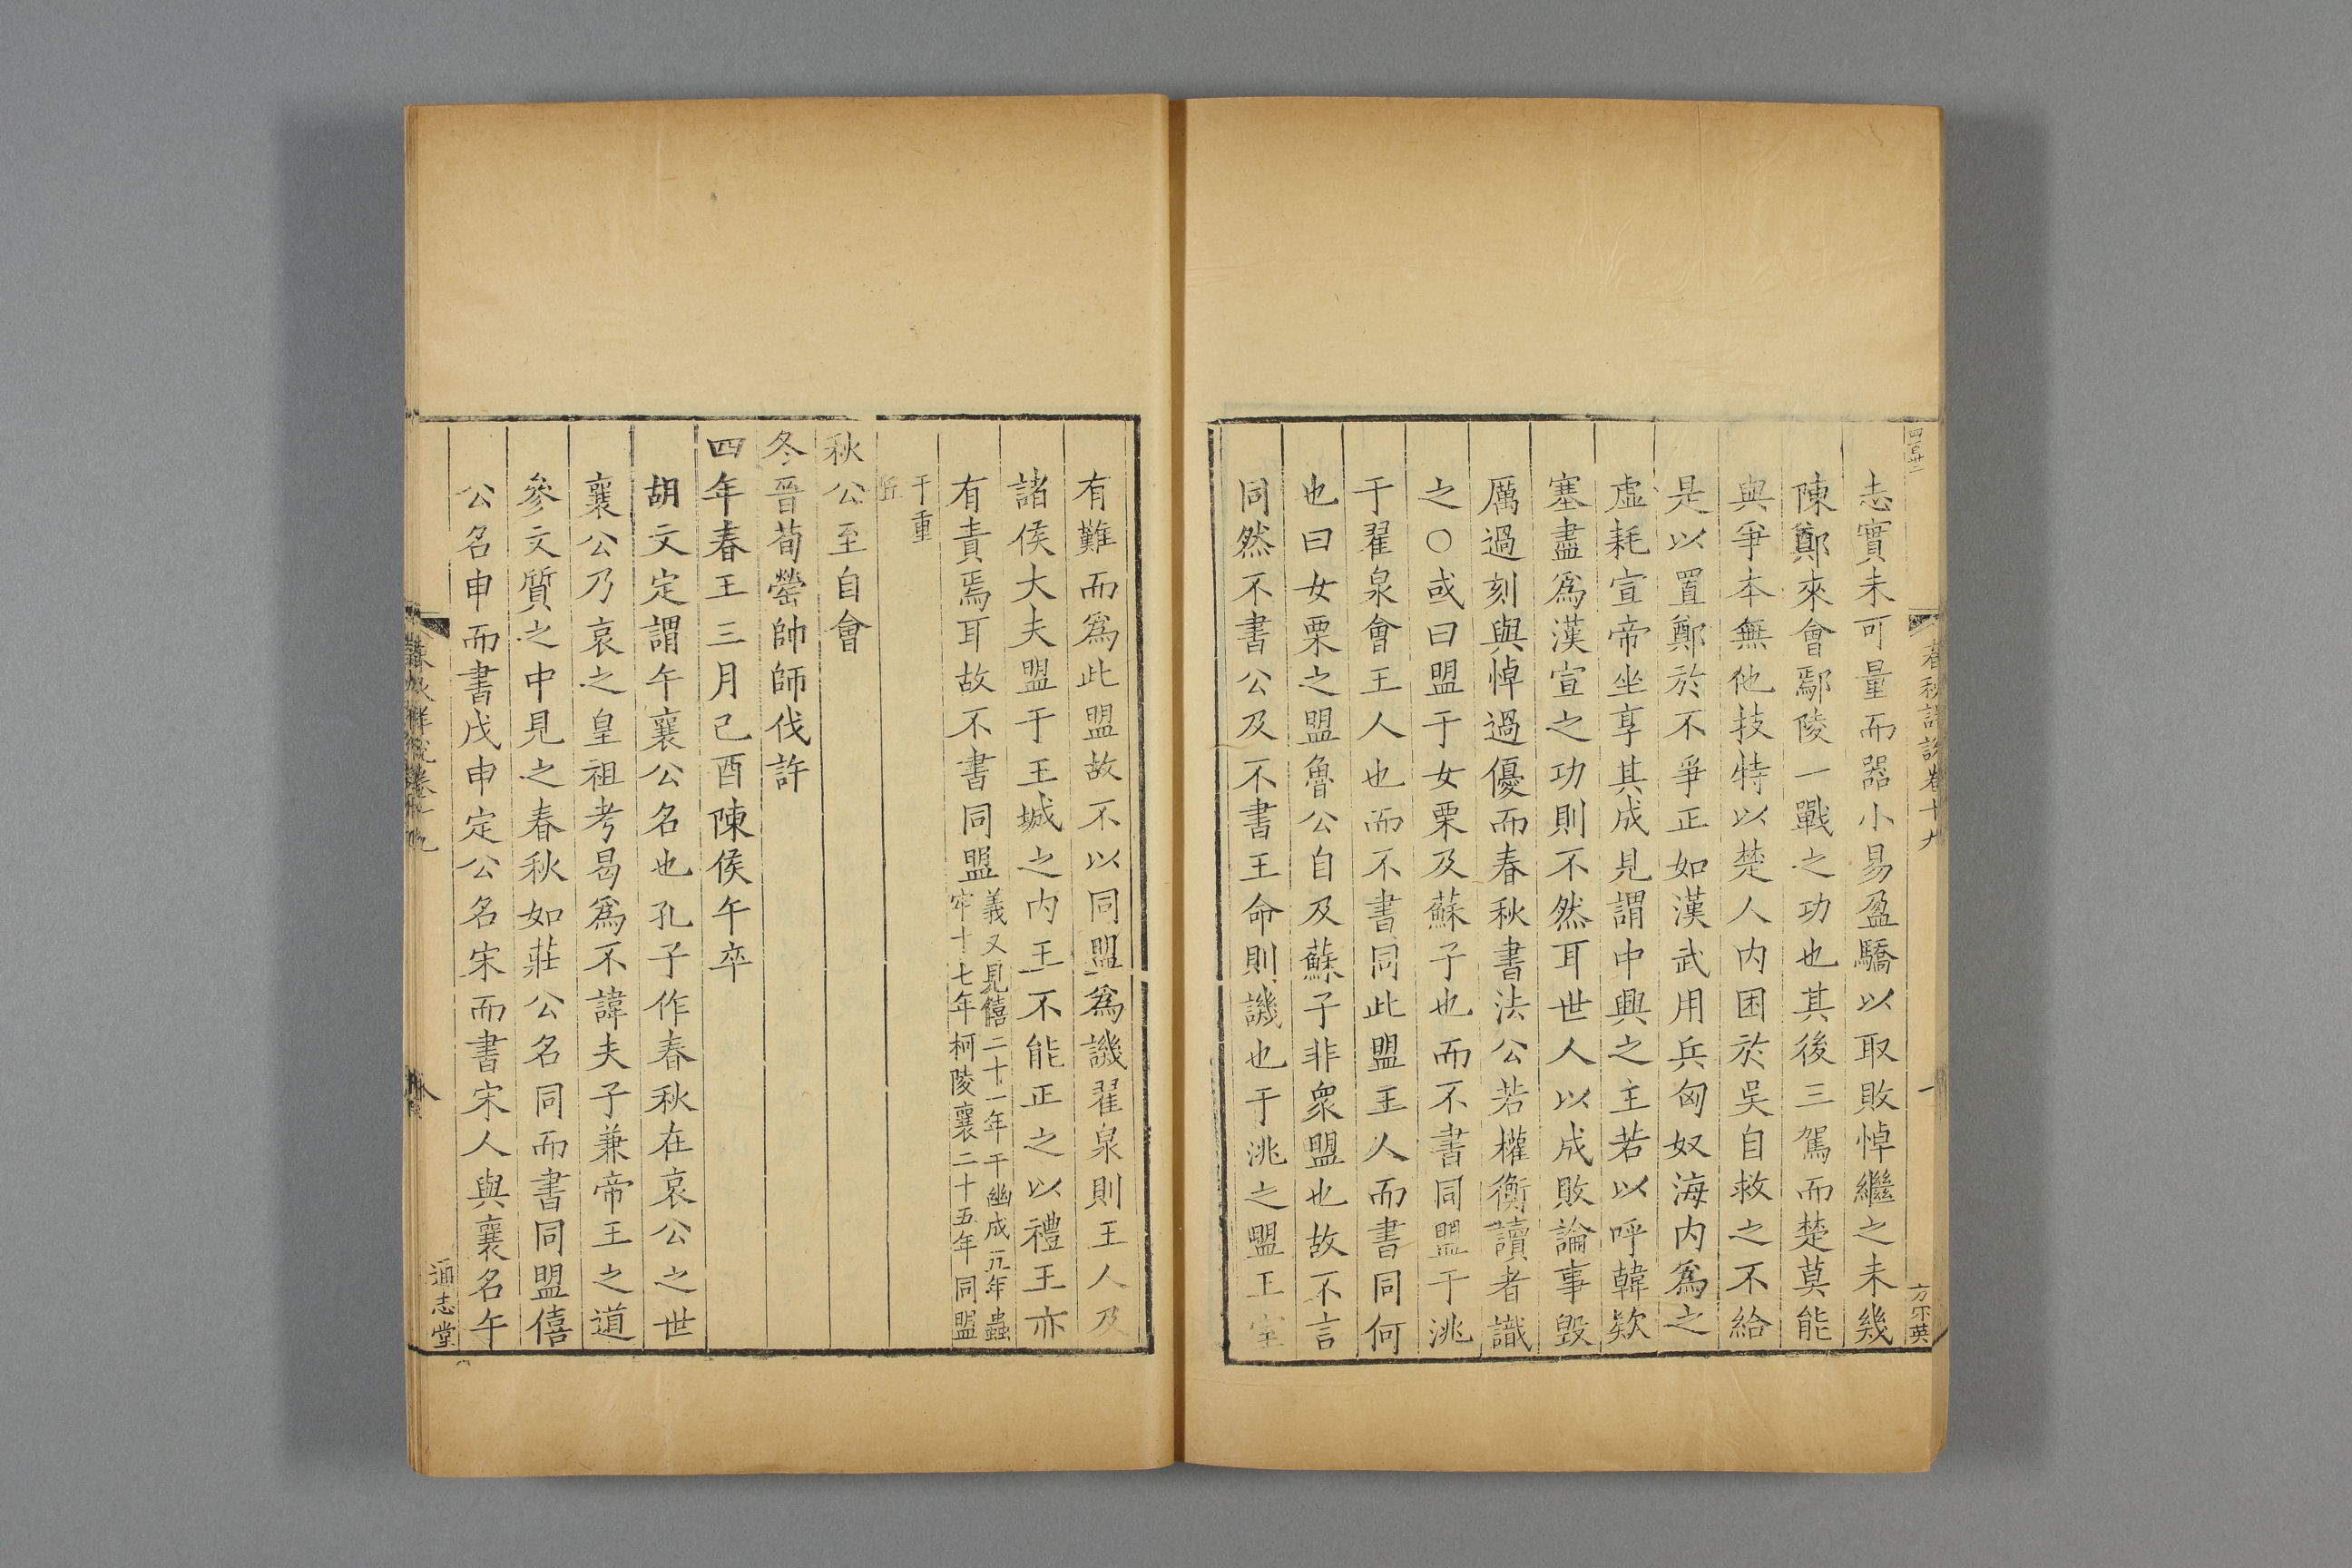 志實未可量而器小易盈驕以取敗悼繼之未幾
陳鄭來會鄢陵一戰之功也其後三駕而楚莫能
與爭本無他技特以楚人内困於吳自救之不給
是以置鄭於不爭正如漢武用兵匈奴海内爲之
虛耗宣帝坐享其成見謂中興之主若以呼韓欵
塞盡爲漢宣之功則不然耳世人以成敗論事毀
厲過刻與悼過優而春秋書法公若權衡讀者識
之○或曰盟于女栗及蘇子也而不書同盟于洮
于翟泉會王人也而不書同此盟王人而書同何
也曰女栗之盟魯公自及蘇子非衆盟也故不言
同然不書公及不書王命則譏也于洮之盟王室
有難而爲此盟故不以同盟爲譏翟泉則王人及
諸侯大夫盟于王城之内王不能正之以禮王亦
有責焉耳故不書同盟義又見僖二十一年于幽成元年蟲
牢十七年柯陵襄二十五年同盟
于重
丘
秋公至自會
冬晉荀罃帥師伐許
四年春王三月己酉陳侯午卒
胡文定謂午襄公名也孔子作春秋在哀公之世
襄公乃哀之皇祖考曷爲不諱夫子兼帝王之道
參文質之中見之春秋如莊公名同而書同盟僖
公名申而書戊申定公名宋而書宋人與襄名午
春秋詳說卷十九
方不英
通志堂